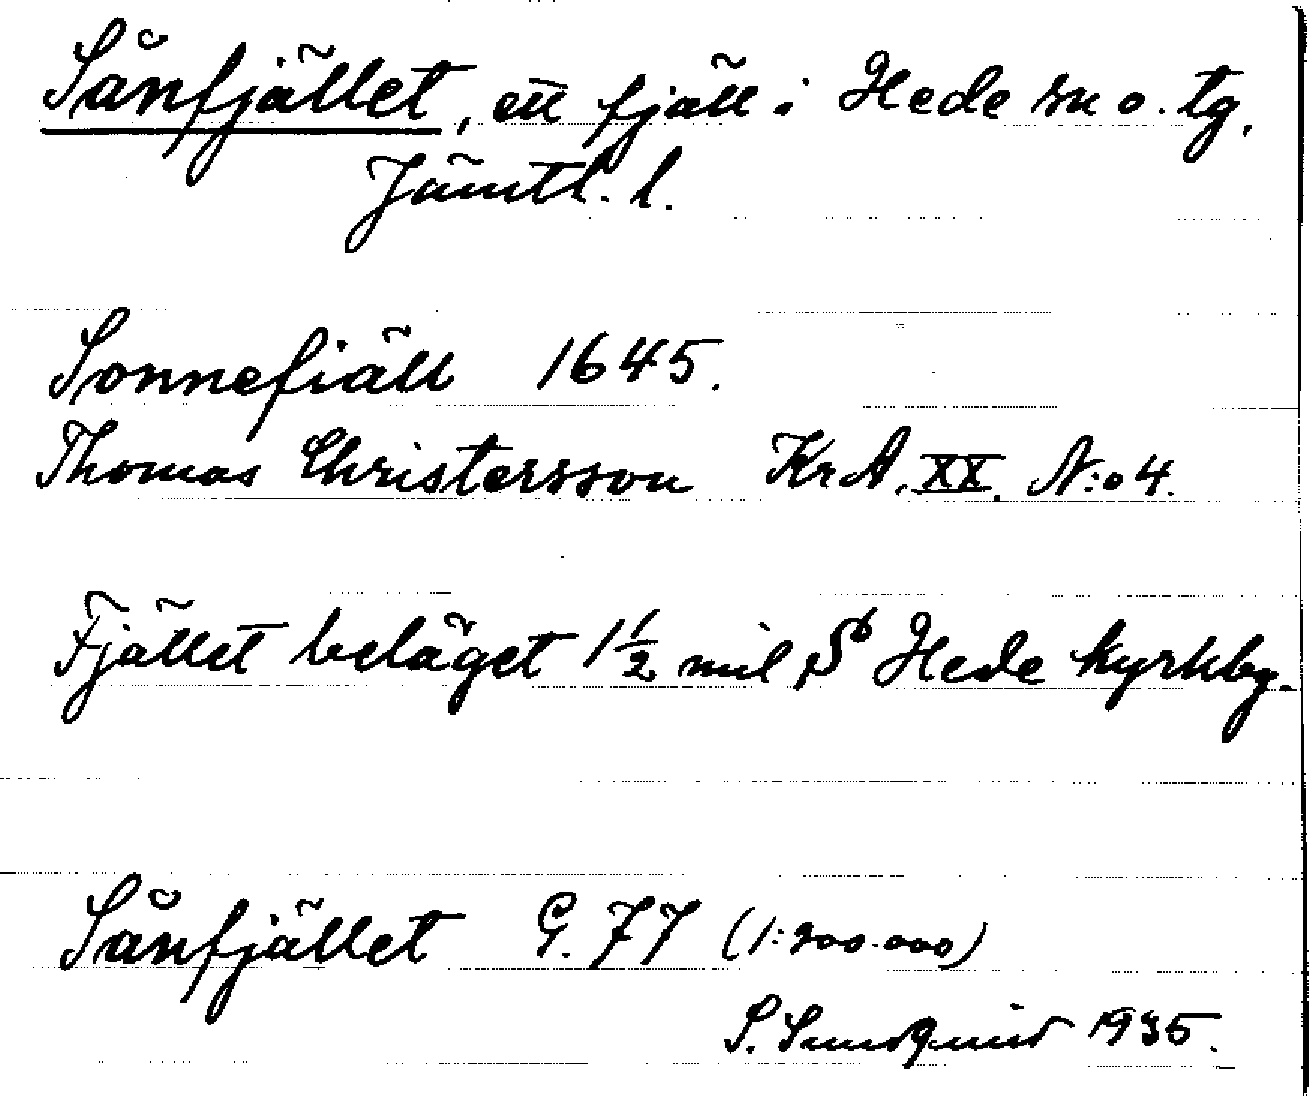 Sånfjället, ett fjäll i Hede sn o. tg.
Jämtl. l.
Sonnefiäll 1645.
Thomas Christersson Kr A. XX. N:o 4.
Fjället beläget 1 1/2 mil S Hede kyrkby.
Sånfjället G. 77 (1:200.000)
S. Sundquist 1935.